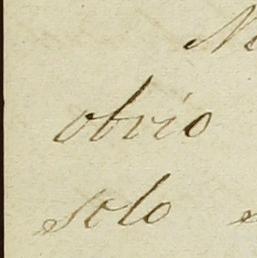 obvio
solo